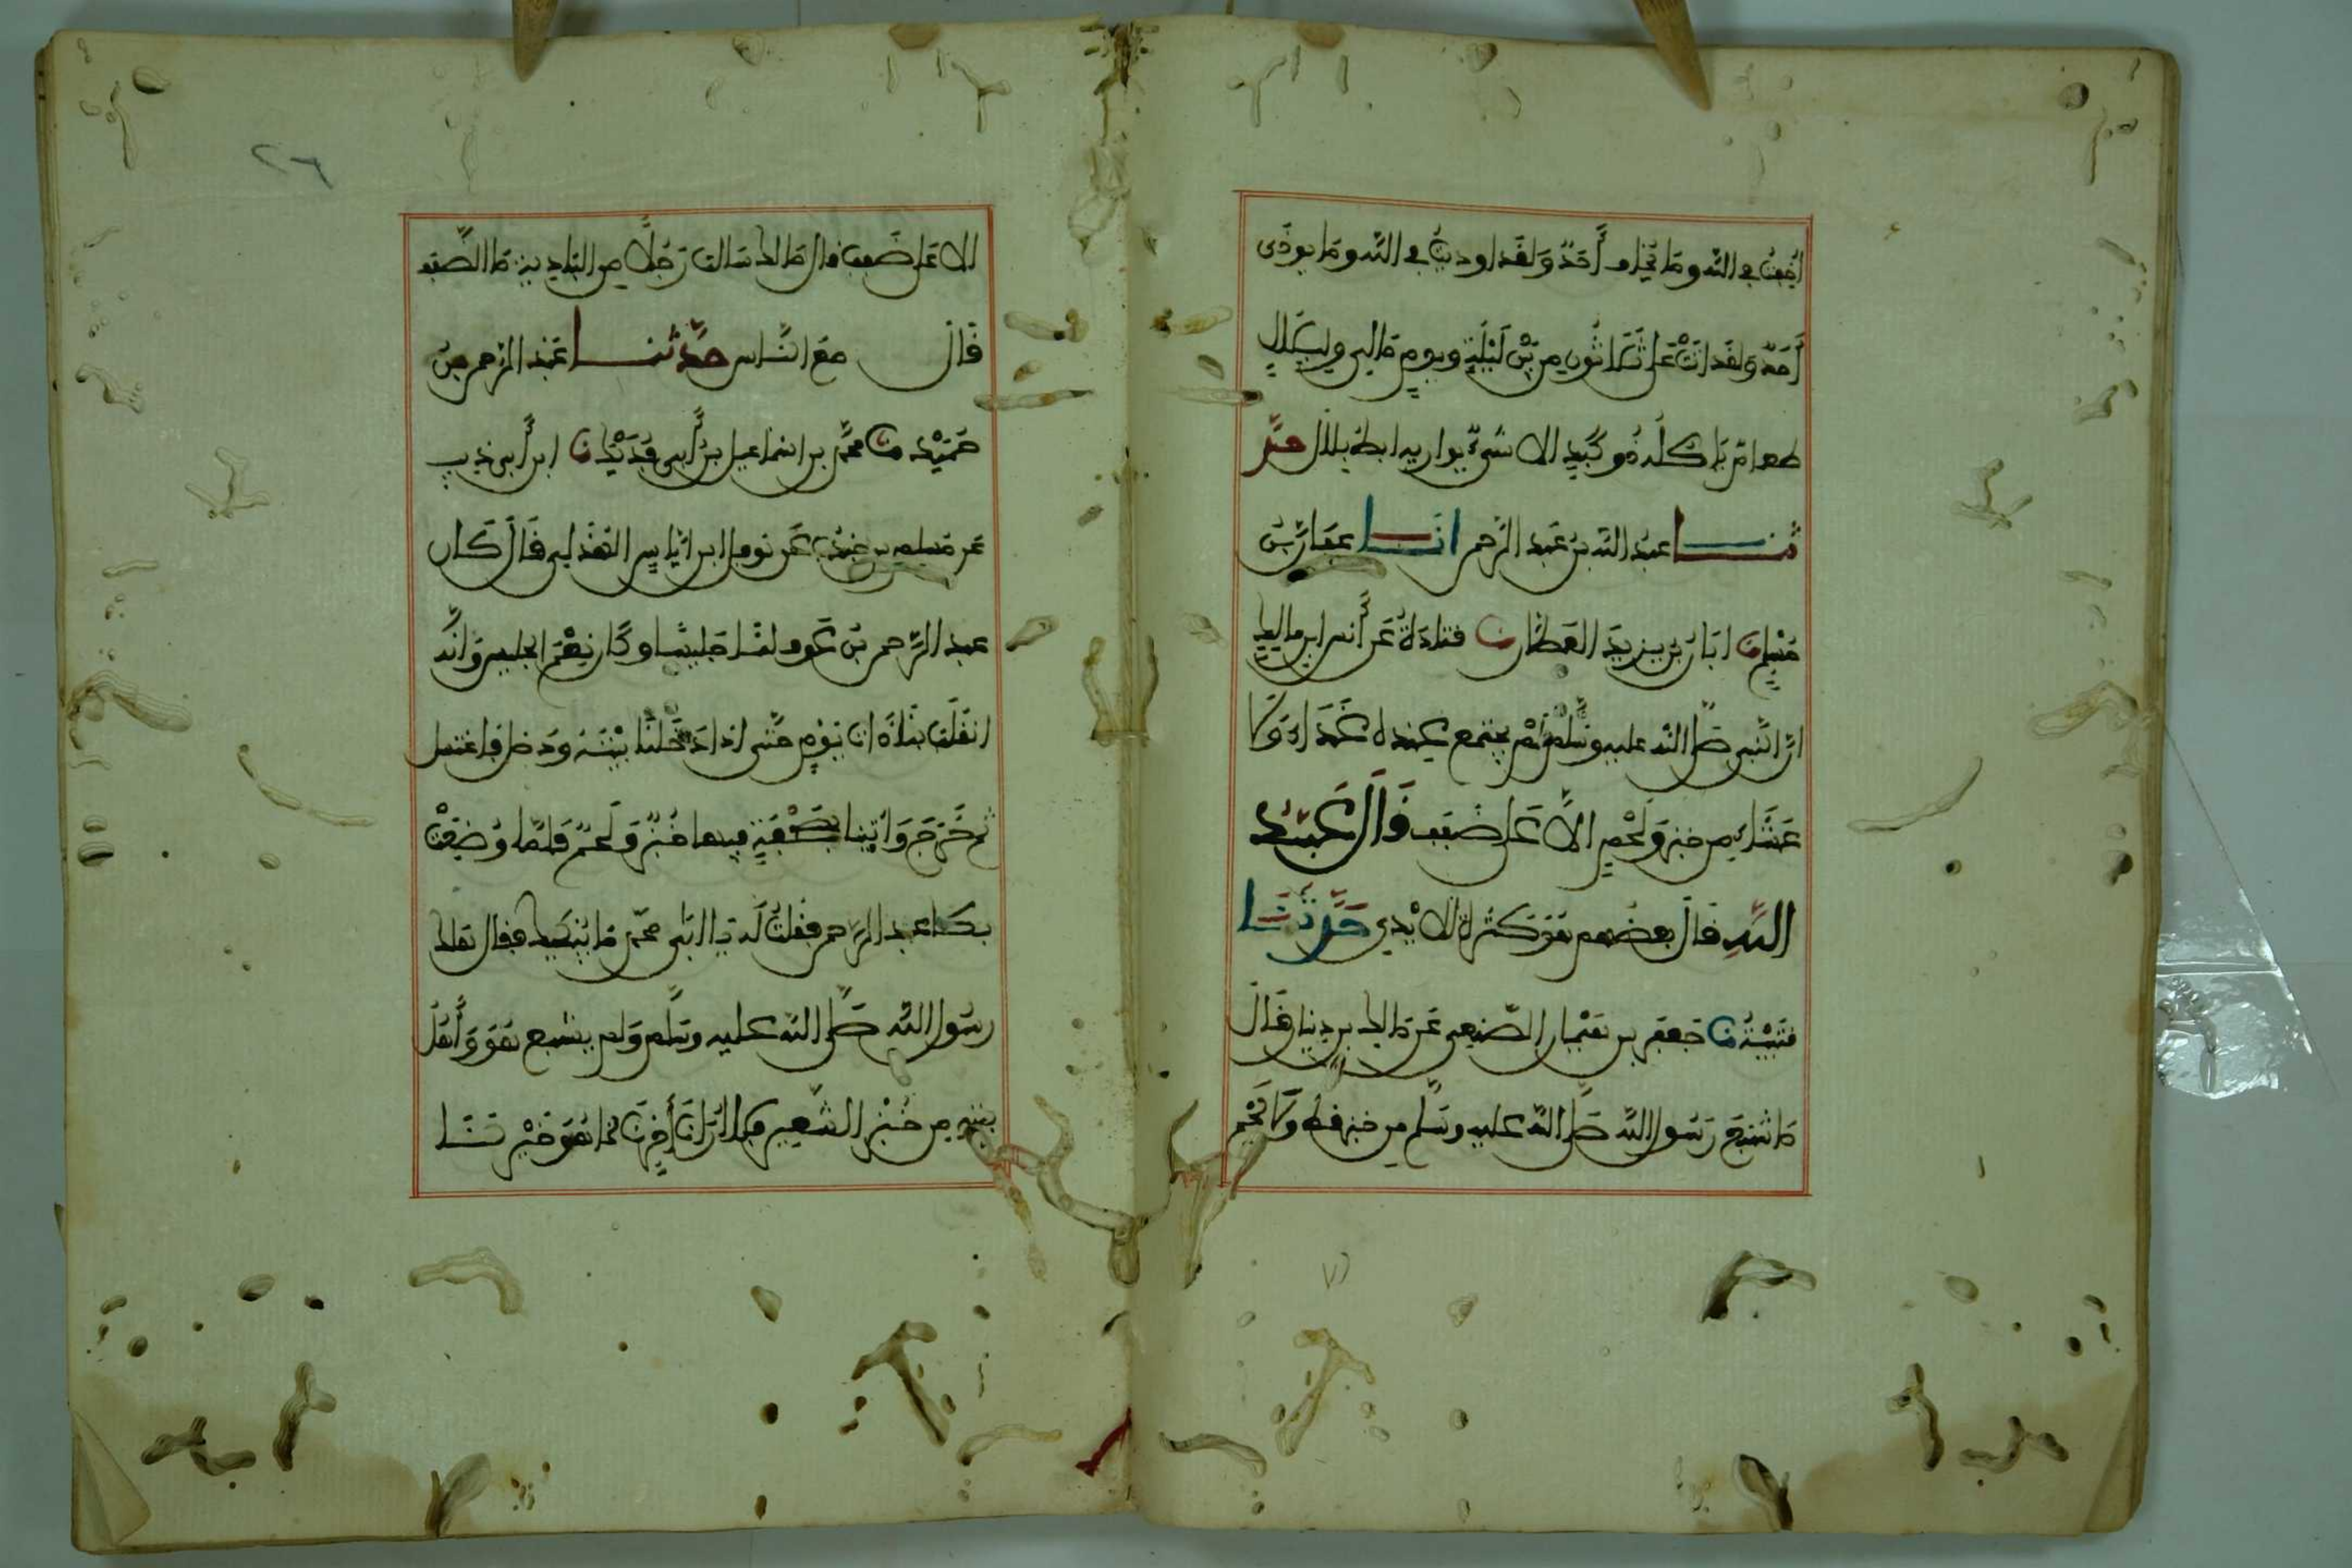 اخفت في الله وما يخاف أحد ولقد اوذيت في الله وما يوذى
أحد ولقد اتت علي ثلاثون من بين ليلة ويوم ما لي ولبلال
طعام يأكله ذو كبد الا شيء يواريه ابط بلال حد
ثنا عبد الله بن عبد الرحمن انا عفان بن
مسلم نا ابان بن يزيد العطار نا قتادة عن أنس ابن مالك
ان النبي صلى الله عليه وسلم لم يجتمع عنده غداء ولا
عشاء من خبز ولحم الا على ضفف قال عبد
الله قال بعضهم هو كثرة الايدي حدثنا
قتيبة نا جعفر بن سليمان الضبعي عن مالك بن دينار قال
ما شبع رسول الله صلى الله عليه وسلم من خبز قط ولا لحم
٢٦
الا على ضفف قال مالك سالت رجلا من البادية ما الضفف
قال مع الناس حدثنا عبد الرحمن بن
حميد نا محمد بن اسماعيل بن أبي فديك نا ابن أبي ذيب
عن مسلم بن جندب عن نوفل ابن اياس الهذلي قال كان
عبد الرحمن بن عوف لنا جليسا وكان نعم الجليس وانه
انقلب بنا ذات يوم حتى اذا دخلنا بيته ودخل فاغتسل
ثم خرج واتينا بصحفة فيها خبز ولحم فلما وضعت
بكا عبد الرحمن فقلت له يا ابا محمد ما يبكيك فقال هلك
رسول الله صلى الله عليه وسلم ولم يشبع هو وأهل
بيته من خبز الشعير فلا ارانا أخرنا لما هو خير لنا